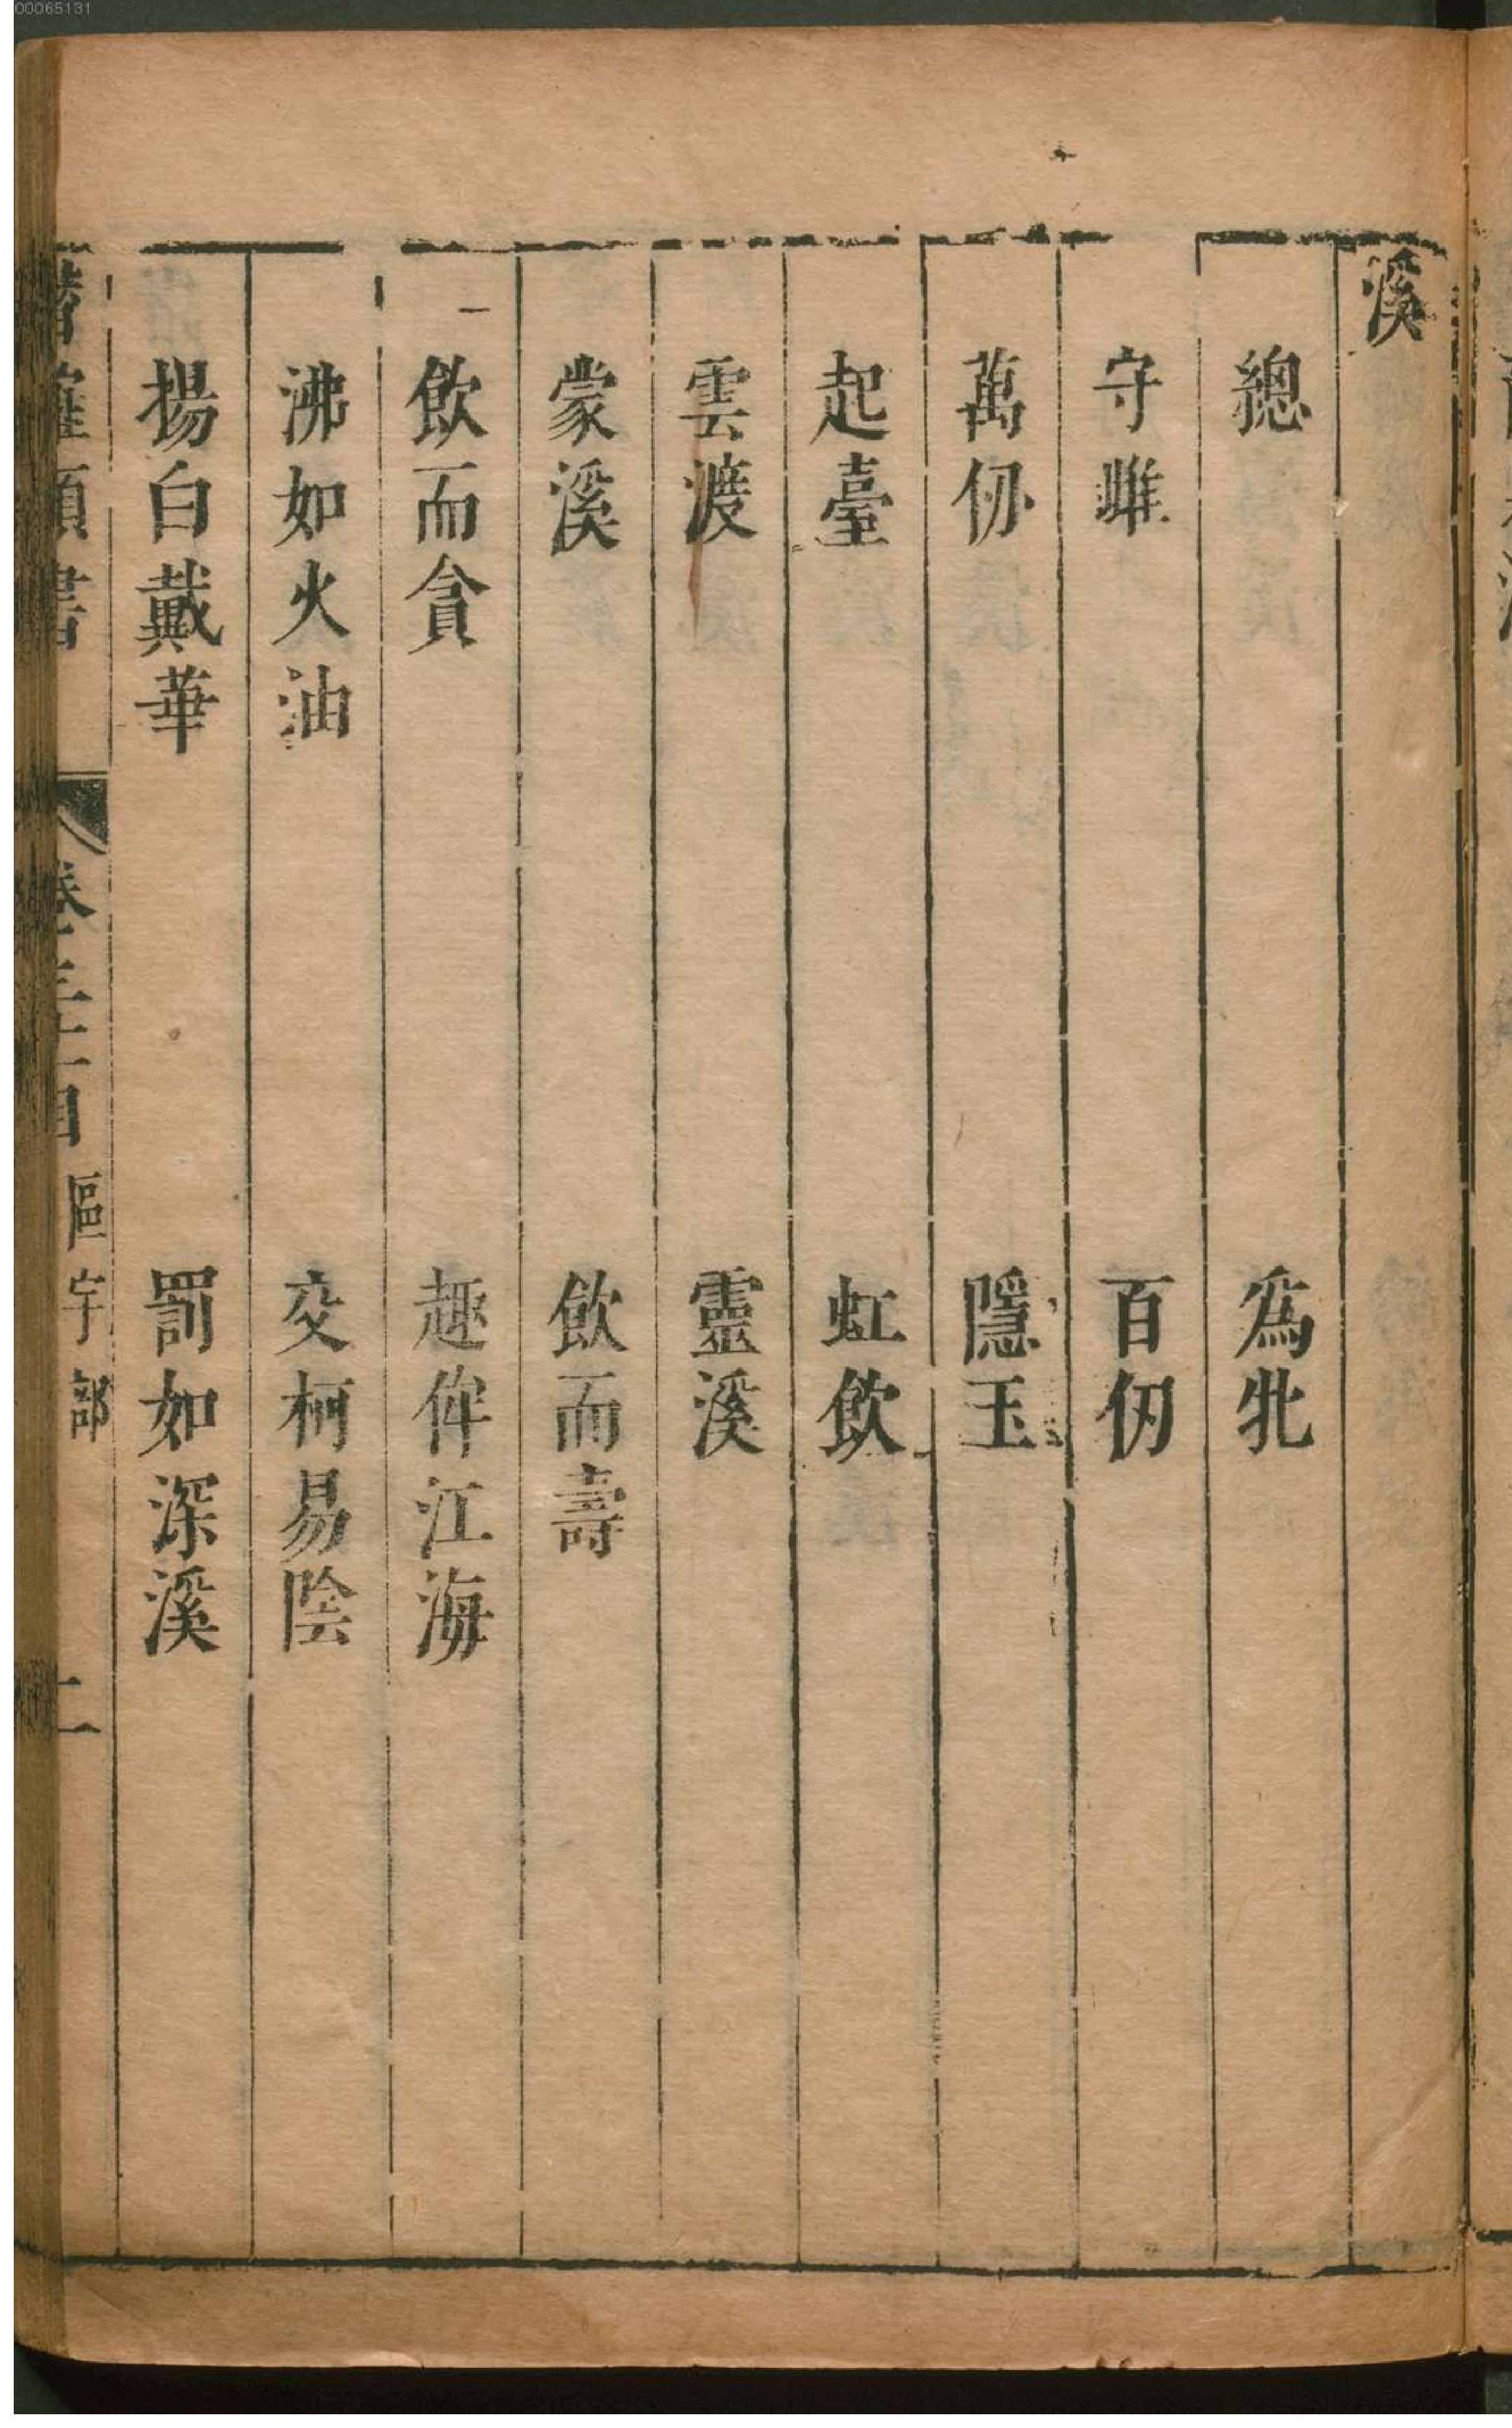 溪
總　為牝
守雌　百仞
萬仞　隱玉
起臺　虹飲
雲渡　靈溪
蒙溪　飲而壽
飲而貪　趣侔江海
沸如火油　交柯易陰
揚白戴華　罰如深溪
潛確類書　卷三十一目　區宇部　二
00065131